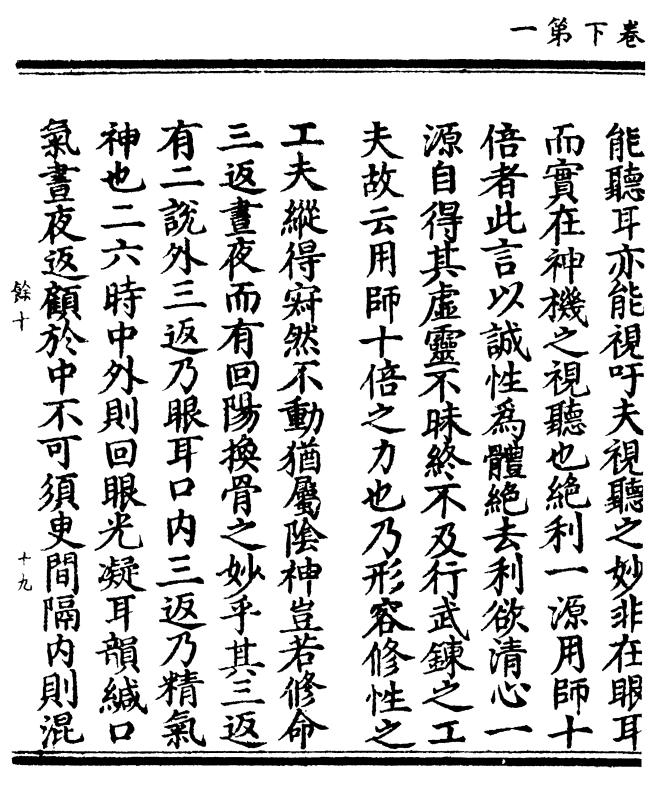 卷下第一
能聽耳亦能視吁夫視聽之妙非在眼耳
而實在神機之視聽也絕利一源用師十
倍者此言以誠性爲體絕去利欲清心一
源自得其虛靈不昧終不及行武鍊之工
夫故云用師十倍之力也乃形容修性之
工夫縱得㝛然不動猶屬陰神豈若修命
三返晝夜而有回陽換骨之妙乎其三返
有二說外三返乃眼耳口内三返乃精氣
神也二六時中外則回眼光凝耳韻緘口
氣晝夜返顧於中不可須臾間隔内則混
餘十
十九